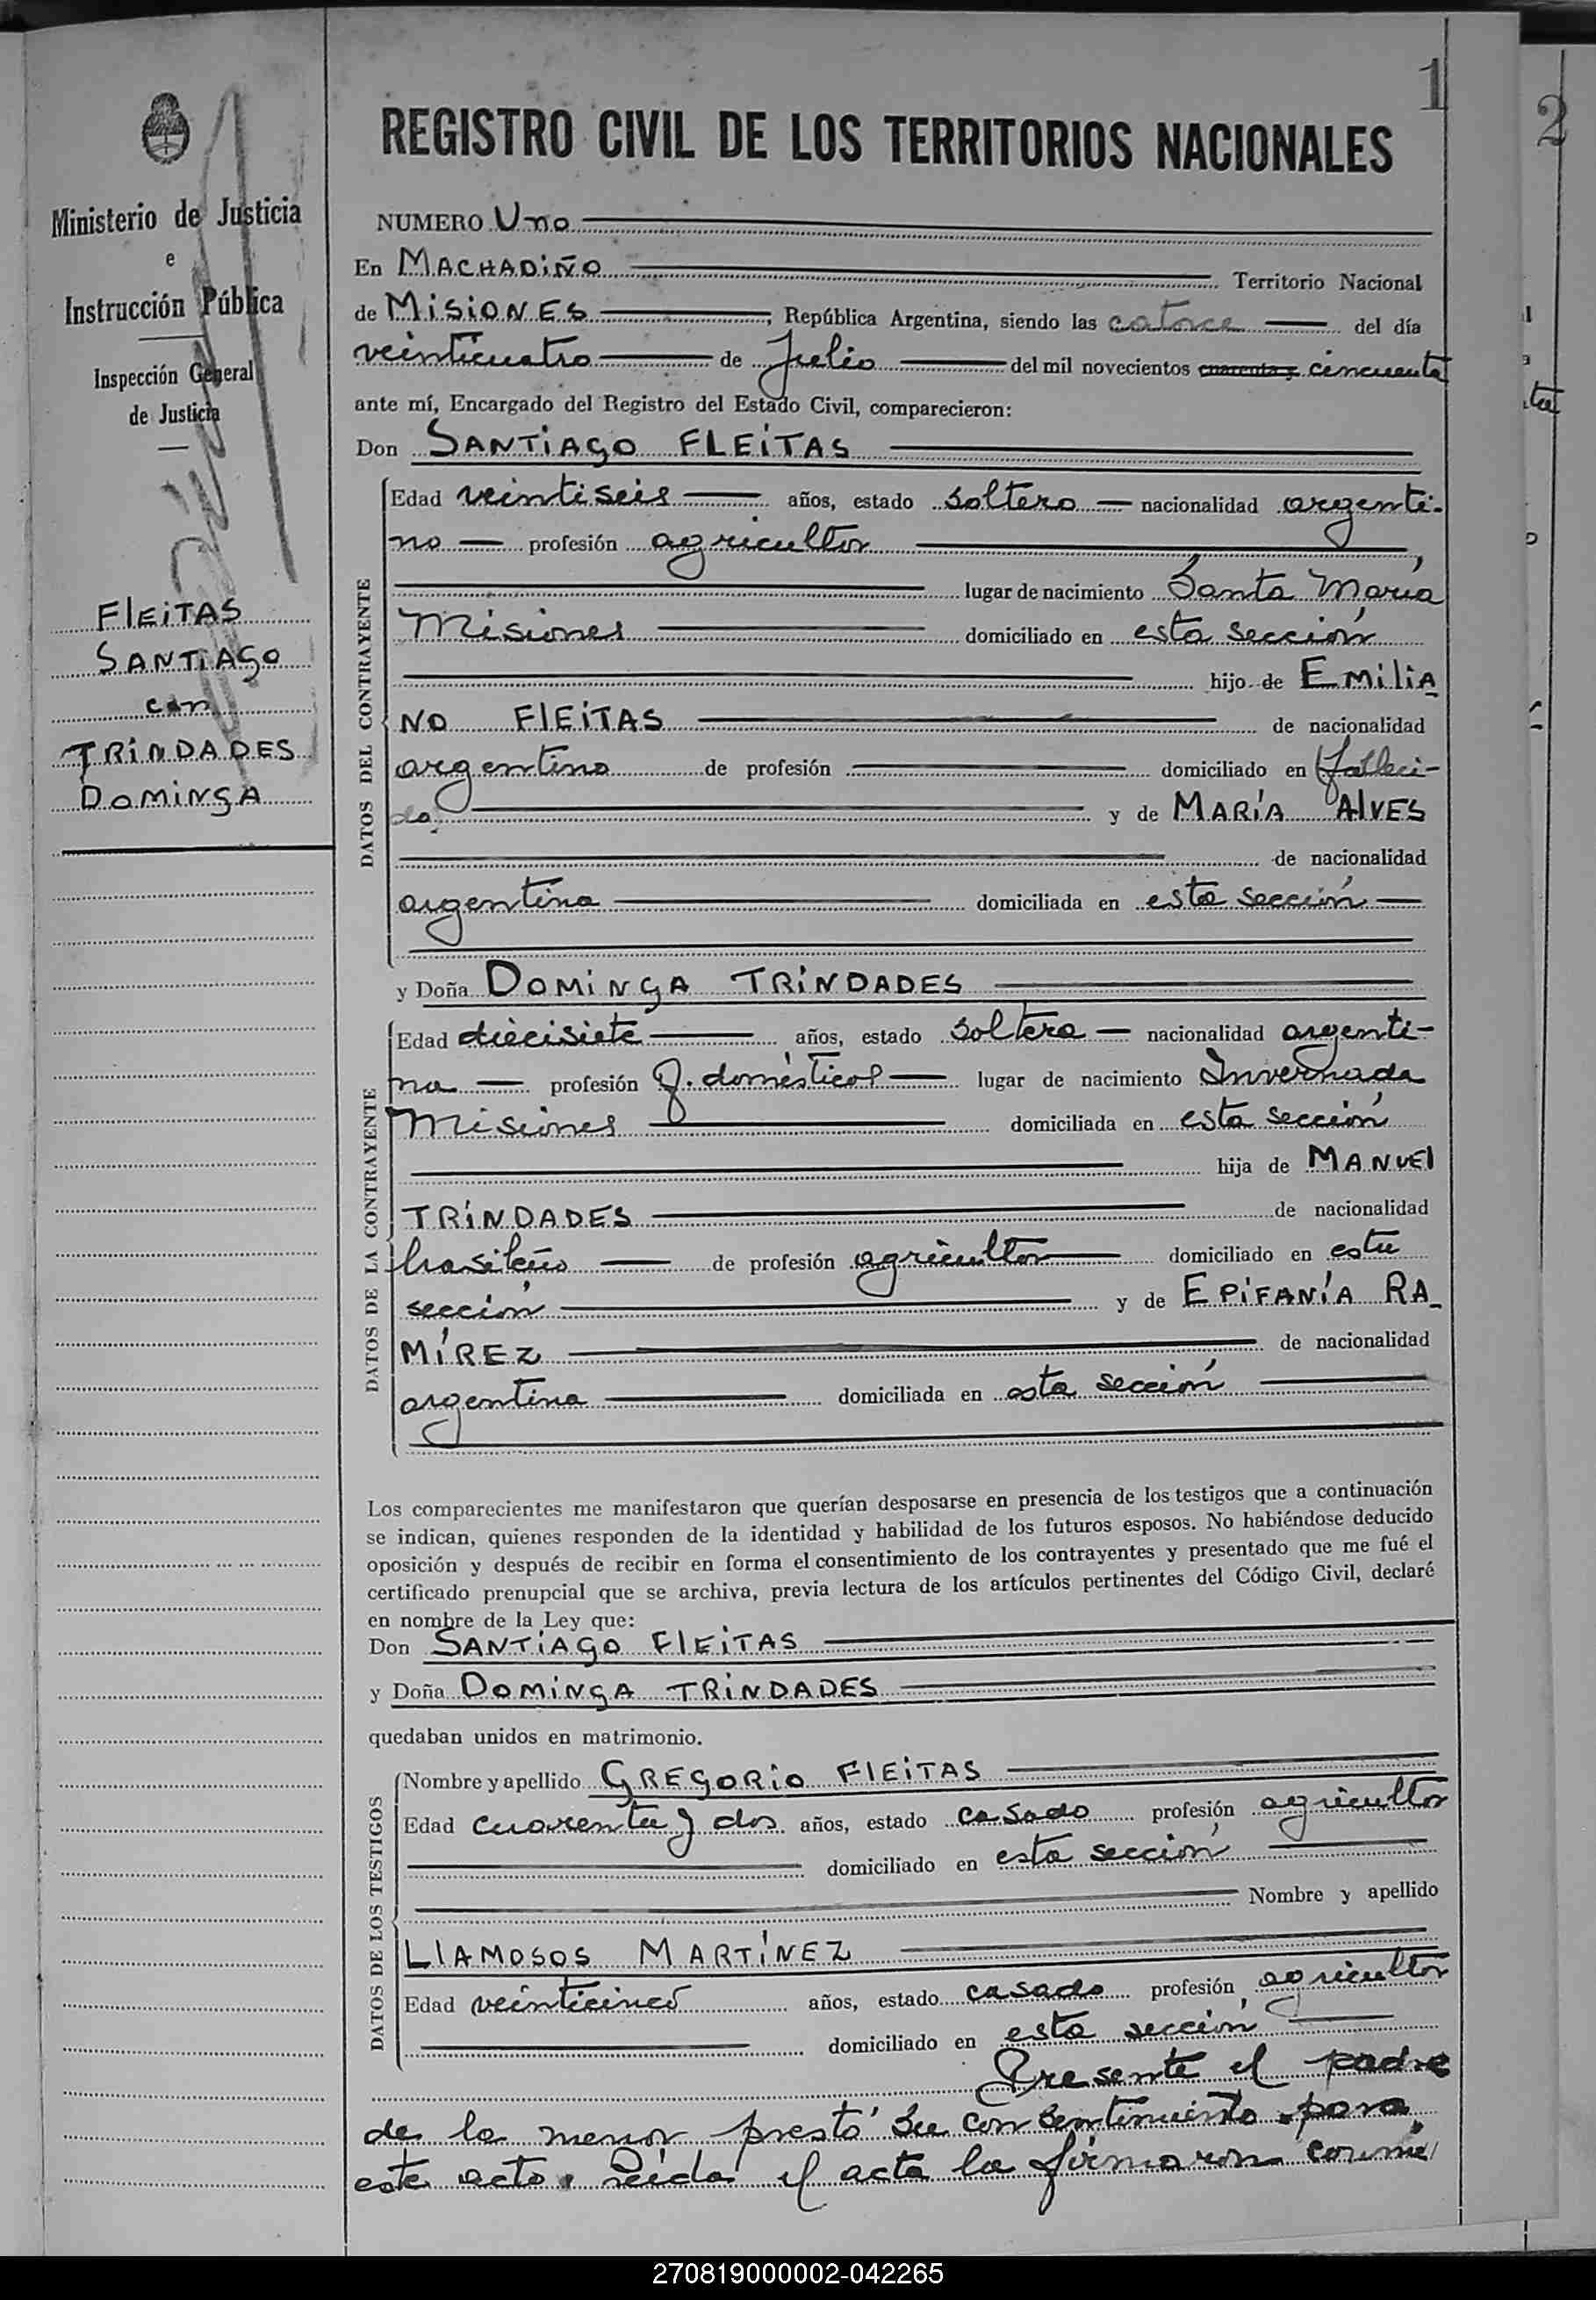 1
2
REGISTRO CIVIL DE LOS TERRITORIOS NACIONALES
Ministerio de Justicia
e
Instrucción Pública
Inspección General
de Justicia
FlEiTAS
SANTiAGO
con
TRiNDADES
DOMiNGA
NUMERO Uno
En MACHADiÑO Territorio Nacional
de MiSiONES, República Argentina, siendo las catorce del día
veinticuatro de Julio del mil novecientos cuarenta y cincuenta
ante mí, Encargado del Registro del Estado Civil, comparecieron:
Don SANTiAGO FLEiTAS
DATOS DEL CONTRAYENTE
Edad veintiseis años, estado soltero nacionalidad argenti-
no profesión agricultor,
lugar de nacimiento Santa María
Misiones domiciliado en esta sección
hijo de EMiliA
NO FlEiTAS de nacionalidad
argentino de profesión domiciliado en (falleci-
do) y de MARÍA AlVES
de nacionalidad
argentina domiciliada en esta sección
y Doña DOMiNGA TRiNDADES
DATOS DE LA CONTRAYENTE
Edad diecisiete años, estado soltera nacionalidad argenti-
na profesión Q. domésticos lugar de nacimiento Invernada
Misiones domiciliada en esta sección
hija de MANUEl
TRiNDADES de nacionalidad
brasileño de profesión agricultor domiciliado en esta
sección y de EPiFANÍA RA-
MÍREZ de nacionalidad
argentina domiciliada en esta sección
Los comparecientes me manifestaron que querían desposarse en presencia de los testigos que a continuación
se indican, quienes responden de la identidad y habilidad de los futuros esposos. No habiéndose deducido
oposición y después de recibir en forma el consentimiento de los contrayentes y presentado que me fué el
certificado prenupcial que se archiva, previa lectura de los artículos pertinentes del Código Civil, declaré
en nombre de la Ley que:
Don SANTiAGO FlEiTAS
y Doña DOMiNGA TRiNDADES
quedaban unidos en matrimonio.
DATOS DE LOS TESTIGOS
Nombre y apellido GREGORiO FlEiTAS
Edad cuarenta y dos años, estado casado profesión agricultor
domiciliado en esta sección
Nombre y apellido
LlAMOSOS MARTÍNEZ
Edad veinticinco años, estado casado profesión agricultor
domiciliado en esta sección
Presente el padre
de la menor prestó su consentimiento para
este acto. Leída el acta la firmaron conmi
270819000002-042265